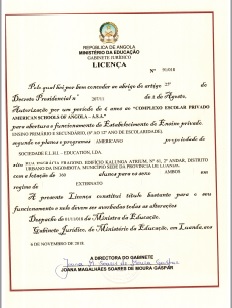 REPÚBLICA DE ANGOLA
MINISTÉRIO DA EDUCAÇÃO
GABINETE JURÍDICO
LICENÇA
Nº 91/018
Pelo qual foi por bem conceder ao abrigo do artigo 23º do
Decreto Presidencial nº 207/11 de 2 de Agosto,
Autorização por um período de 4 anos ao "COMPLEXO ESCOLAR PRIVADO
AMERICAN SCHOOLS OF ANGOLA - A.S.A."
para abertura e funcionamento do Estabelecimento de Ensino privado.
ENSINO PRIMÁRIO E SECUNDÁRIO, (1ª AO 12ª ANO DE ESCOLARIDADE)
segundo os planos e programas AMERICANO propriedade de
SOCIEDADE E.L.H.I. - EDUCATION, LDA.
sito EDIFÍCIO KALUNGA ATRIUM, Nº 2º ANDAR, DISTRITO
URBANO DA INGOMBOTA, MUNICÍPIO SEDE DA PROVÍNCIA DE LUANDA,
com a lotação de 360 alumos para os sexo AMBOS em
regime de EXTERNATO
A presente Licença constitui título bastante para o seu
funcionamento e nele devem ser averbadas todas as alterações
Despacho da Ministra da Educação.
Gabinete Jurídico, do Ministério da Educação, em Luanda, aos
6 DE NOVEMBRO DE 2018.
A DIRECTORA DO GABINETE
JOANA MAGALHÃES SOARES DE MOURA GASPAR